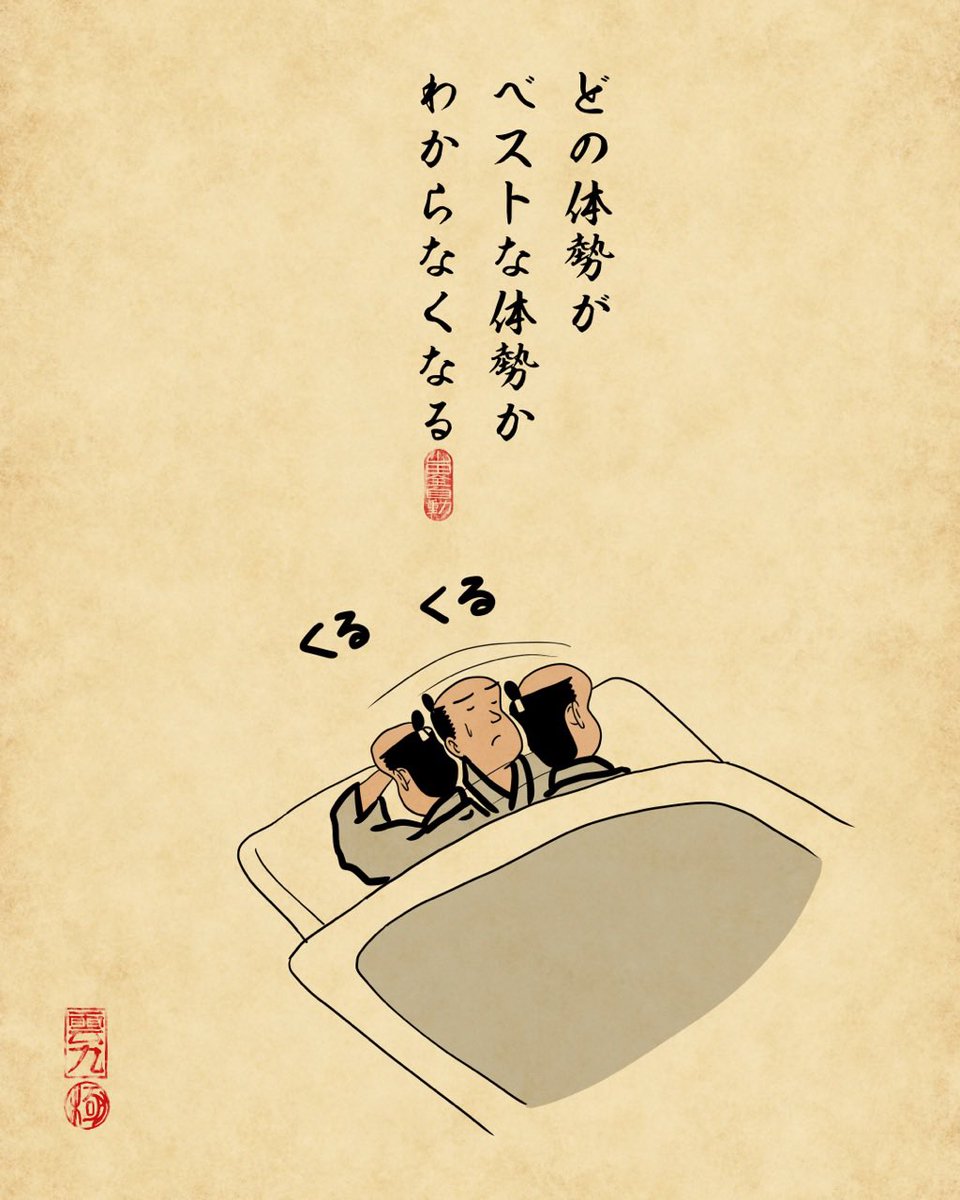 どの体勢が
ベストな体勢か
わからなくなる
くる
くる